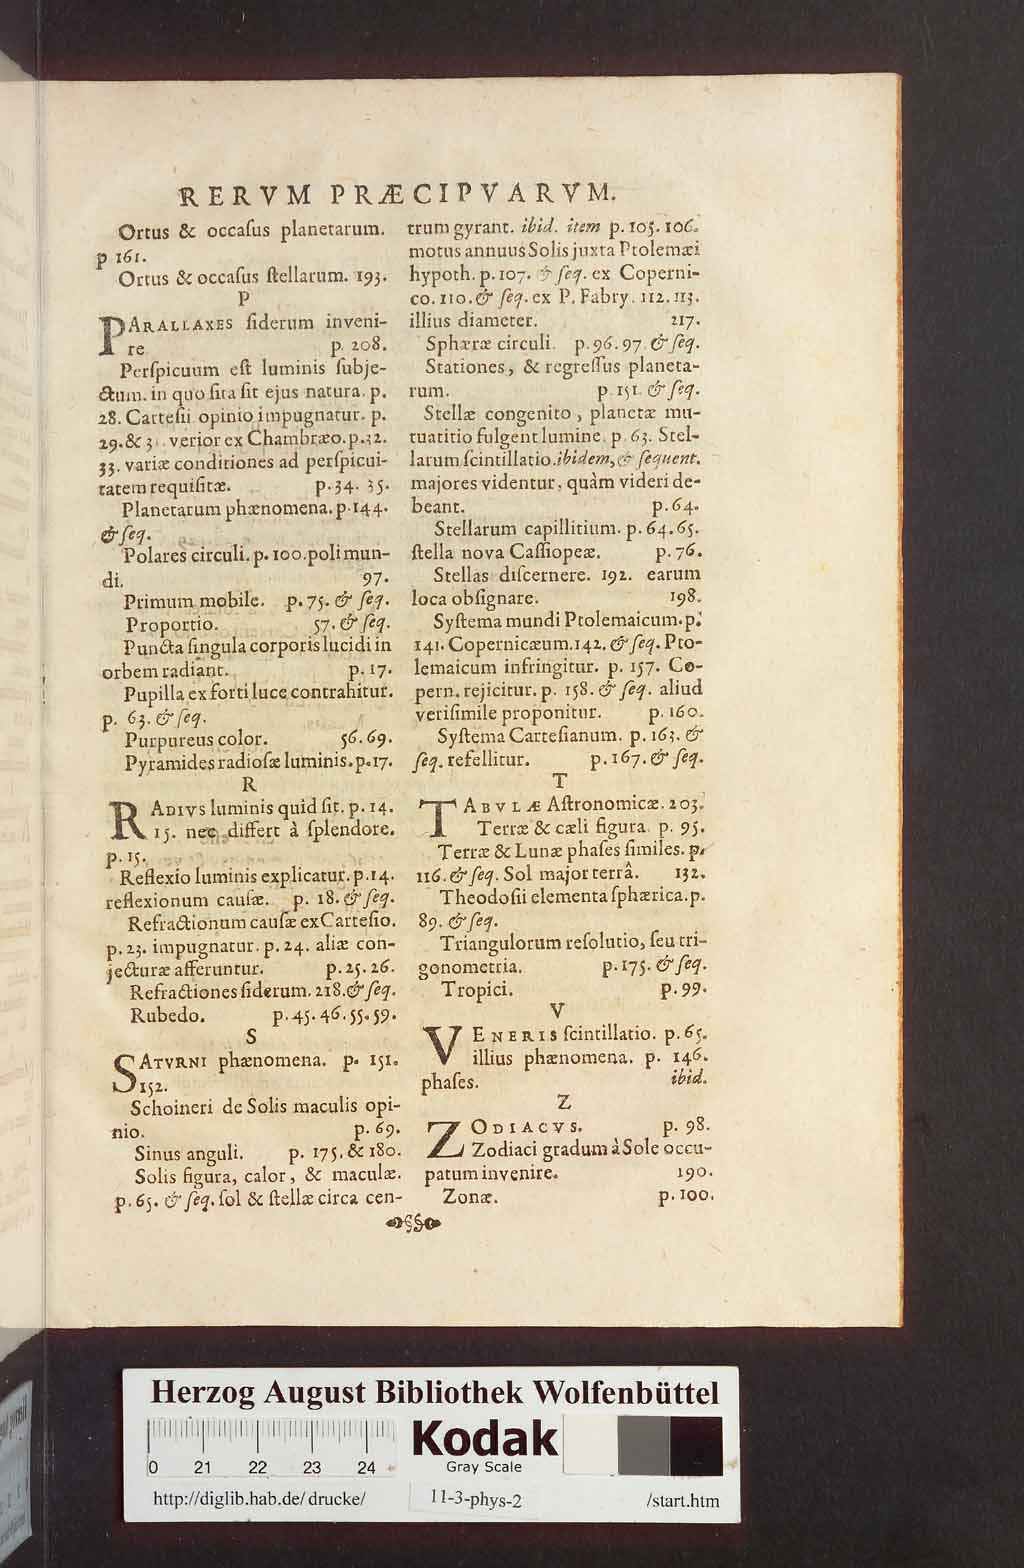 RERVM PRÆCIPVARVM.
Ortus & occaſus planetarum.
p 161.
Ortus & occaſus ſtellarum. 193.
P
PARALLAXES ſiderum inveni-
re p. 208.
Perſpicuum eſt luminis ſubje-
ctum. in quo ſita ſit ejus natura. p.
28. Carteſii opinio impugnatur. p.
29. & 3 . verior ex Chambræo. p. 32.
33. variæ conditiones ad perſpicui-
tatem requiſitæ. p. 34. 35.
Planetarum phænomena. p. 144.
& ſeq.
Polares circuli. p. 100. poli mun-
di. 97.
Primum mobile. p. 75. & ſeq.
Proportio. 57. & ſeq.
Puncta ſingula corporis lucidi in
orbem radiant. p. 17.
Pupilla ex forti luce contrahitur.
p. 63. & ſeq.
Purpureus color. 56. 69.
Pyramides radioſæ luminis. p. 17.
R
RADIVS luminis quid ſit. p. 14.
15. nec differt à ſplendore.
p. 15.
Reflexio luminis explicatur. p. 14.
reflexionum cauſæ. p. 18. & ſeq.
Refractionum cauſæ ex Carteſio.
p. 23. impugnatur. p. 24. aliæ con-
jecturæ afferuntur. p. 25. 26.
Refractiones ſiderum. 218. & ſeq.
Rubedo. p. 45. 46. 55. 59.
S
SATVRNI phænomena. p. 151.
152.
Schoineri de Solis maculis opi-
nio. p. 69.
Sinus anguli. p. 175. & 180.
Solis figura, calor, & maculæ.
p. 65. & ſeq. ſol & ſtellæ circa cen-
trum gyrant. ibid. item p. 105. 106.
motus annuus Solis juxta Ptolemæi
hypoth. p. 107. & ſeq. ex Coperni-
co. 110. & ſeq. ex P. Fabry. 112. 113.
illius diameter. 217.
Sphæræ circuli. p. 96. 97. & ſeq.
Stationes, & regreſſus planeta-
rum. p. 151. & ſeq.
Stellæ congenito, planetæ mu-
tuatitio fulgent lumine. p. 63. Stel-
larum ſcintillatio. ibidem, & ſequent.
majores videntur, quàm videri de-
beant. p. 64.
Stellarum capillitium. p. 64. 65.
ſtella nova Caſſiopeæ. p. 76.
Stellas diſcernere. 192. earum
loca obſignare. 198.
Syſtema mundi Ptolemaicum. p.
141. Copernicæum. 142. & ſeq. Pto-
lemaicum infringitur. p. 157. Co-
pern. rejicitur. p. 158. & ſeq. aliud
veriſimile proponitur. p. 160.
Syſtema Carteſianum. p. 163. &
ſeq. refellitur. p. 167. & ſeq.
T
TABVLÆ Aſtronomicæ. 203.
Terræ & cæli figura. p. 95.
Terræ & Lunæ phaſes ſimiles. p.
116. & ſeq. Sol major terrâ. 132.
Theodoſii elementa ſphærica. p.
89. & ſeq.
Triangulorum reſolutio, ſeu tri-
gonometria. p. 175. & ſeq.
Tropici. p. 99.
V
VENERIS ſcintillatio. p. 65.
illius phænomena. p. 146.
phaſes. ibid.
Z
ZODIACVS. p. 98.
Zodiaci gradum à Sole occu-
patum invenire. 190.
Zonæ. p. 100.
Herzog August Bibliothek Wolfenbüttel
0 21 22 23 24
Kodak
Gray Scale
http://diglib.hab.de/drucke/ 11-3-phys-2 /start.htm